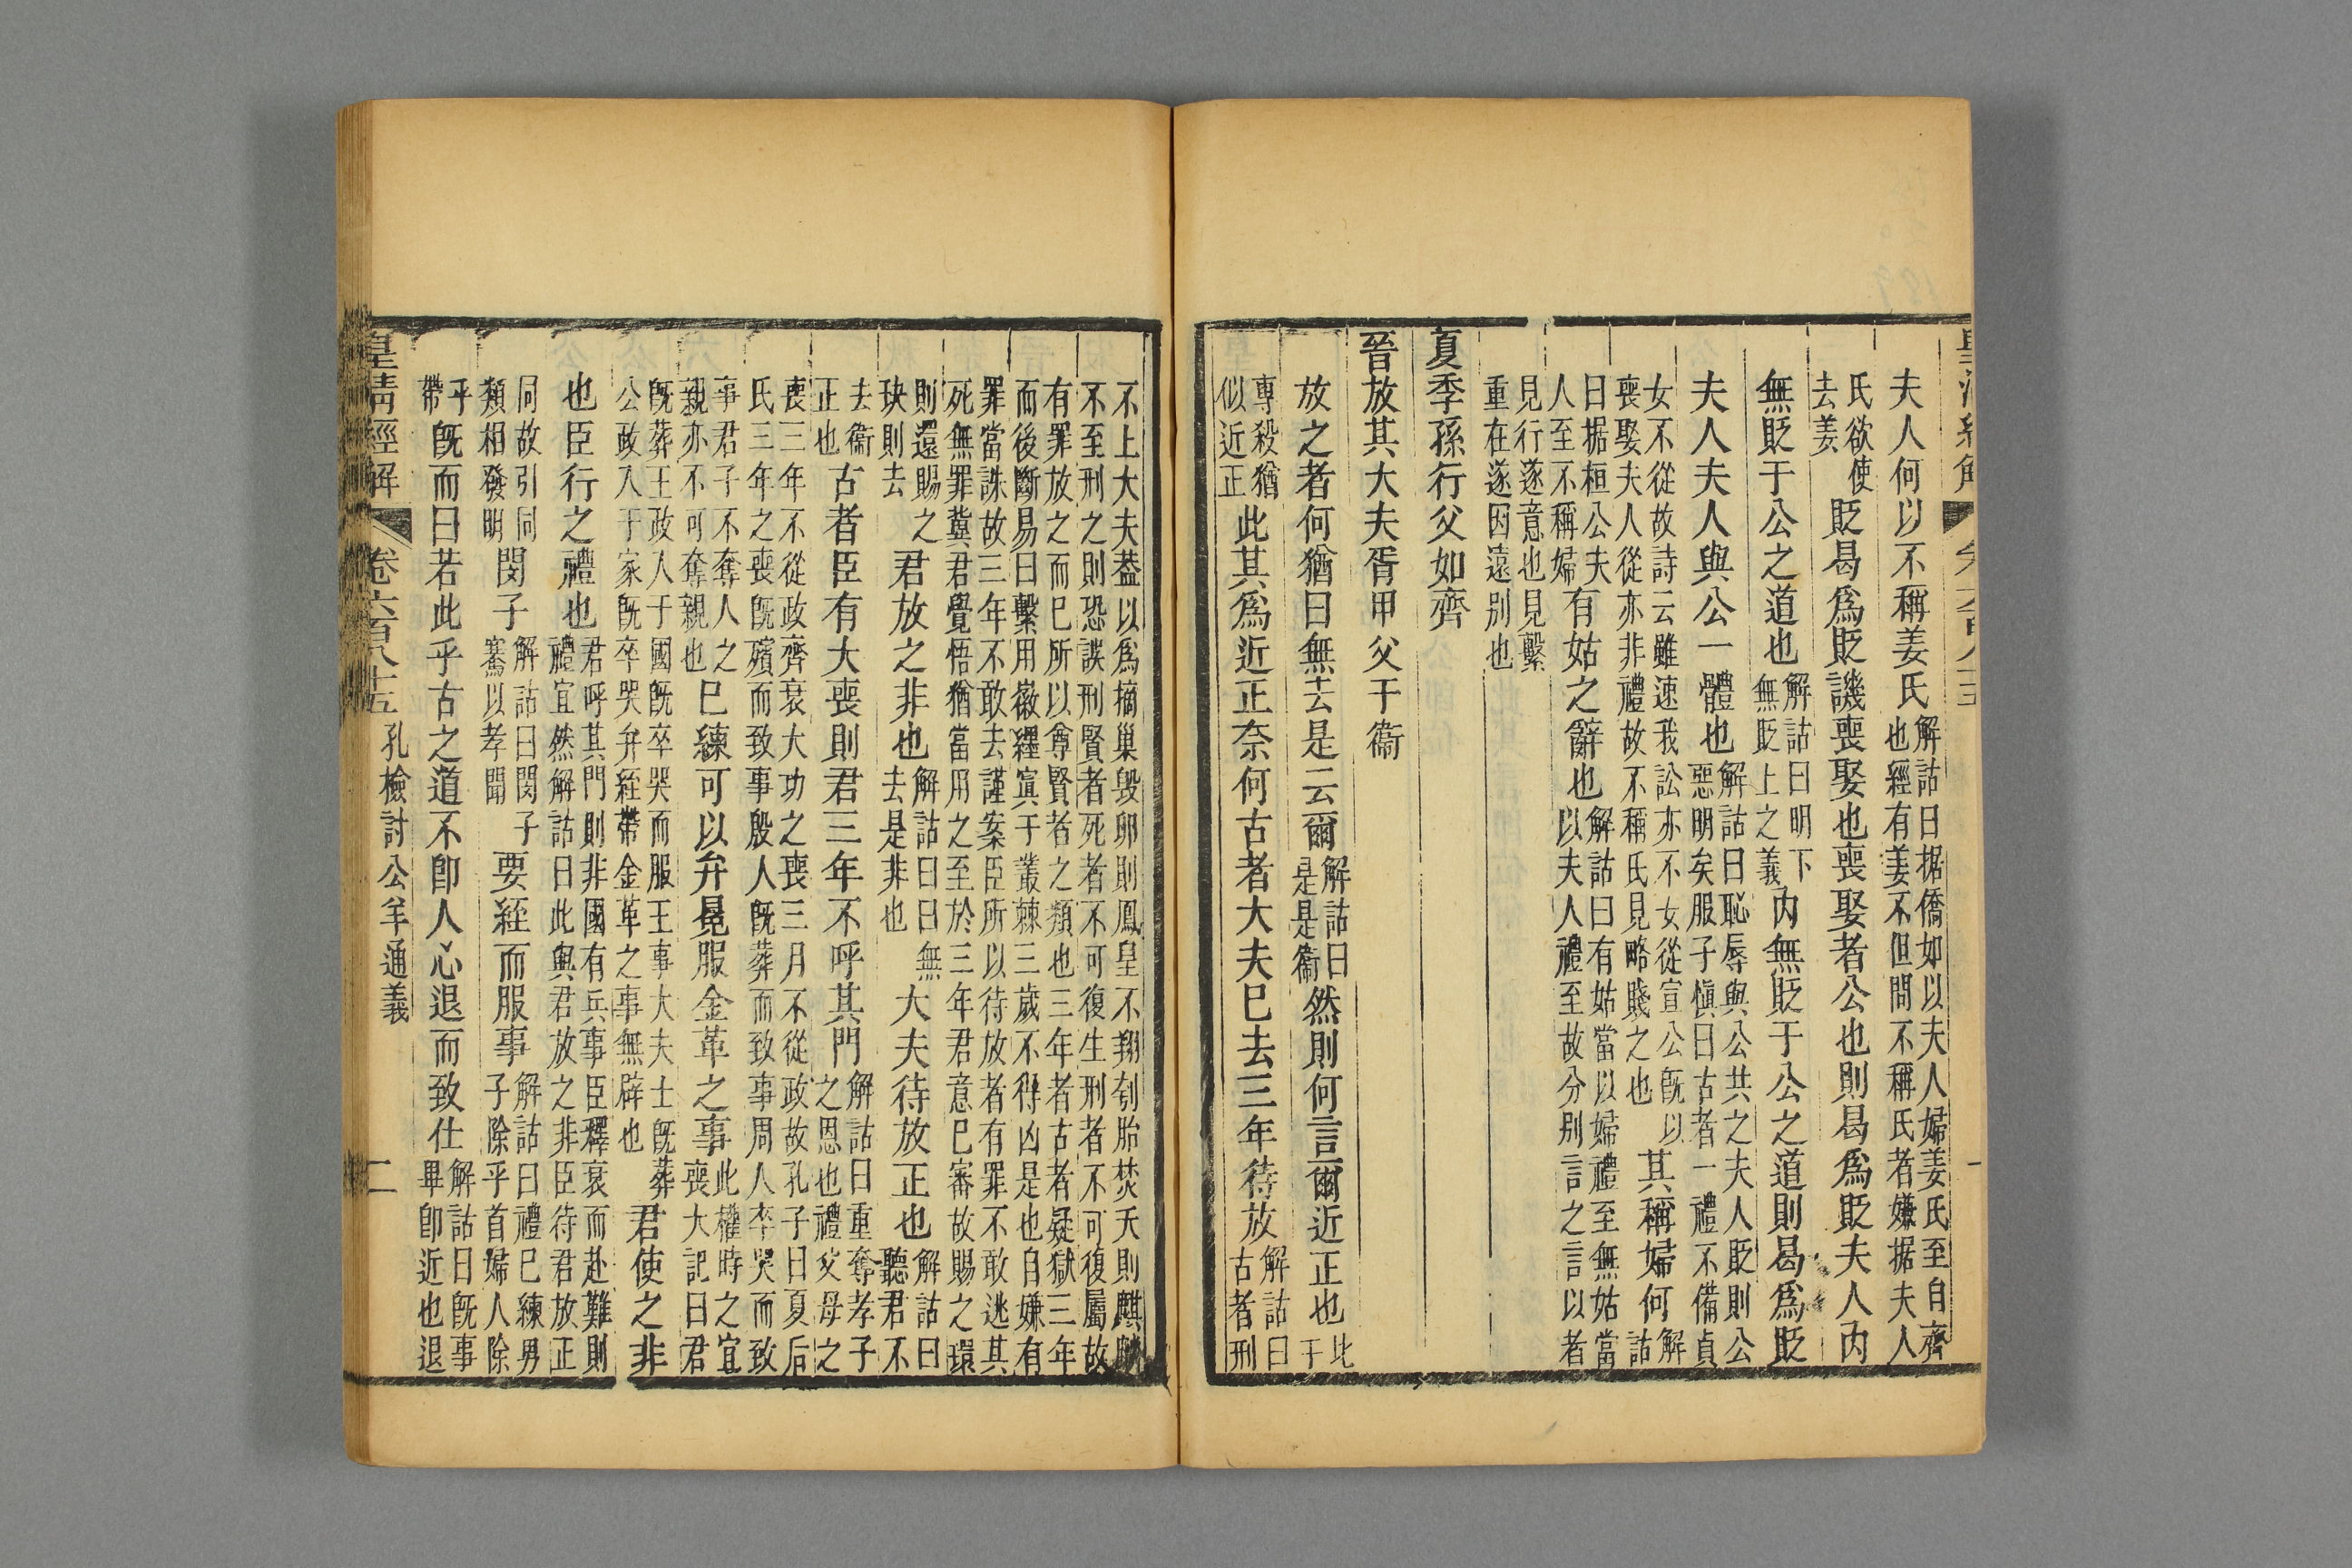 夫人何以不稱姜氏解詁曰据僑如以夫人婦姜氏至自齊也經有姜不但問不稱氏者嫌据夫人
氏欲使去姜貶曷爲貶譏喪娶也喪娶者公也則曷爲貶夫人內
無貶于公之道也解詁曰明下無貶上之義內無貶于公之道則曷爲貶
夫人夫人與公一體也解詁曰恥辱與公共之夫人貶則公惡明矣服子愼曰古者一禮不備貞
女不從故詩云雖速我訟亦不女從宣公旣以喪娶夫人從亦非禮故不稱氏見略賤之也其稱婦何解詁
曰据桓公夫人至不稱婦有姑之辭也解詁曰有姑當以婦禮至無姑當以夫人禮至故分別言之言以者
見行遂意也見繫重在遂因遠別也
夏季孫行父如齊
晉放其大夫胥甲父于衞
放之者何猶曰無去是云爾解詁曰是是衞然則何言爾近正也此于
專殺猶似近正此其爲近正奈何古者大夫已去三年待放解詁曰古者刑
不上大夫葢以爲摘巢毀卵則鳳皇不翔刳胎焚夭則麒麟不至刑之則恐誤刑賢者死者不可復生刑者不可復屬故
有罪放之而已所以尊賢者之類也三年者古者疑獄三年而後斷易曰繫用徽纆寘于叢棘三歲不得凶是也自嫌有
罪當誅故三年不敢去謹案臣所以待放者有罪不敢逃其死無罪冀君覺悟猶當用之至於三年君意已審故賜之環
則還賜之玦則去君放之非也解詁曰曰無去是非也大夫待放正也解詁曰聽君不
去衞正也古者臣有大喪則君三年不呼其門解詁曰重奪孝子之恩也禮父母之
喪三年不從政齊衰大功之喪三月不從政故孔子曰夏后氏三年之喪旣殯而致事殷人旣葬而致事周人卒哭而致
事君子不奪人之親亦不可奪親也已練可以弁冕服金革之事此權時之宜喪大記曰君
旣葬王政入于國旣卒哭而服王事大夫士旣葬公政入于家旣卒哭弁絰帶金革之事無辟也君使之非
也臣行之禮也君呼其門則非國有兵事臣釋衰而赴難則禮宜然解詁曰此與君放之非臣待君放正
同故引同類相發明閔子解詁曰閔子騫以孝聞要絰而服事解詁曰禮已練男子除乎首婦人除
乎帶旣而曰若此乎古之道不卽人心退而致仕解詁曰旣事畢卽近也退
皇清經解 卷六百八十五 孔檢討公羊通義 二